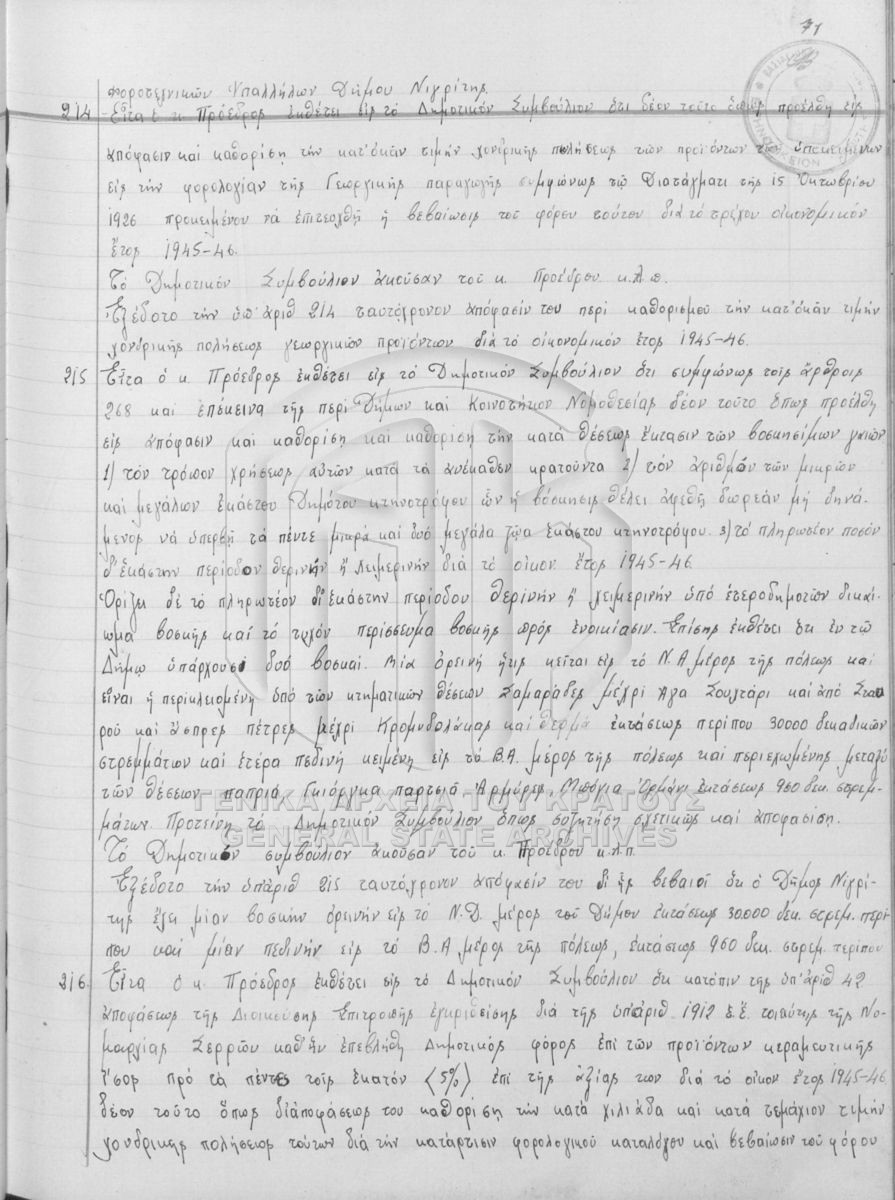 71
φοροτεχνικῶν Ὑπαλλήλων Δήμου Νιγρίτης.
214 Εἶτα ὁ κ. Πρόεδρος ἐκθέτει εἰς τὸ Δημοτικόν Συμβούλιον ὅτι δέον τοῦτο ὅπως προέλθῃ εἰς
ἀπόφασιν καὶ καθορίσῃ τὴν κατ' ὀκᾶν τιμὴν χονδρικῆς πωλήσεως τῶν προϊόντων τῶν ὑποκειμένων
εἰς τὴν φορολογίαν τῆς Γεωργικῆς παραγωγῆς συμφώνως τῷ Διατάγματι τῆς 15 Ὀκτωβρίου
1926 προκειμένου νὰ ἐπιτευχθῇ ἡ βεβαίωσις τοῦ φόρου τούτου διὰ τὸ τρέχον οἰκονομικόν
ἔτος 1945-46.
Τὸ Δημοτικόν Συμβούλιον ἀκοῦσαν τοῦ κ. Προέδρου κ.λ.π.
Ἐξέδοτο τὴν ὑπ' ἀριθ 214 ταυτόχρονον ἀπόφασίν του περὶ καθορισμοῦ τὴν κατ' ὀκᾶν τιμήν
χονδρικῆς πολήσεως γεωργικῶν προϊόντων διὰ τὸ οἰκονομικόν ἔτος 1945-46.
215 Εἶτα ὁ κ. Πρόεδρος ἐκθέτει εἰς τὸ Δημοτικόν Συμβούλιον ὅτι συμφώνως τοῖς ἄρθροις
268 καὶ ἐπέκεινα τῆς περὶ Δήμων καὶ Κοινοτήτων Νομοθεσίας δέον τοῦτο ὅπως προέλθῃ
εἰς ἀπόφασιν καὶ καθορίσῃ καὶ καθορίσῃ τὴν κατὰ θέσεως ἔκτασιν τῶν βοσκησίμων γαιῶν
1) τὸν τρόπον χρήσεως αὐτῶν κατὰ τὰ ἀνέκαθεν κρατοῦντα 2) τὸν ἀριθμόν τῶν μικρῶν
καὶ μεγάλων ἑκάστου Δημότου κτηνοτρόφου ὧν ἡ βόσκησις θέλει ἀφεθῇ δωρεάν μὴ δυνά-
μενος νὰ ὑπερβῇ τὰ πέντε μικρὰ καὶ δυό μεγάλα ζῷα ἑκάστου κτηνοτρόφου. 3) τὸ πληρωτέον ποσόν
δι' ἑκάστην περίοδον θερινήν ἢ χειμερινήν διὰ τὸ οἰκον. ἔτος 1945-46.
Ὁρίζει δὲ τὸ πληρωτέον δι' ἑκάστην περίοδον θερινήν ἢ χειμερινήν ὑπό ἑτεροδημοτῶν δικαί-
ωμα βοσκῆς καὶ τὸ τυχόν περίσσευμα βοσκῆς πρὸς ἐνοικίασιν. Ἐπίσης ἐκθέτει ὅτι ἐν τῷ
Δήμῳ ὑπάρχουσι δυό βοσκαί. Μία ὀρεινή ἥτις κεῖται εἰς τὸ Ν.Α μέρος τῆς πόλεως καὶ
εἶναι ἡ περικλειομένη ὑπό τῶν κτηματικῶν θέσεων Σαμαράδες μέχρι Ἀγα Σουχτάρι καὶ ἀπό Σταυ
ροῦ καὶ ἄσπρες πέτρες μέχρι Κρομυδολάκας καὶ θερμά ἐκτάσεως περίπου 30000 δεκαδικῶν
στρεμμάτων καὶ ἑτέρα πεδινή κειμένη εἰς τὸ Β.Α. μέρος τῆς πόλεως καὶ περιεχωμένης μεταξύ
τῶν θέσεων παπριά, Γκιόργκα παρτσιά, Ἀρμύρες, Μπόγια Ὀρμάνι ἐκτάσεως 960 δεκ. στρεμ-
μάτων. Προτείνη τὸ Δημοτικόν Συμβούλιον ὅπως συζητήσῃ σχετικῶς καὶ ἀποφασίσῃ.
Τὸ Δημοτικόν συμβούλιον ἀκοῦσαν τοῦ κ. Προέδρου κ.λ.π.
Ἐξέδοτο τὴν ὑπ' ἀριθ 215 ταυτόχρονον ἀπόφασίν του δι' ἧς βεβαιοῖ ὅτι ὁ Δῆμος Νιγρί-
της ἔχει μίαν βοσκήν ὀρεινήν εἰς τὸ Ν.Δ. μέρος τοῦ Δήμου ἐκτάσεως 30000 δεκ. στρεμ. περί-
που καὶ μίαν πεδινήν εἰς τὸ Β.Α μέρος τῆς πόλεως, ἐκτάσεως 960 δεκ. στρεμ. περίπου
216. Εἶτα ὁ κ. Πρόεδρος ἐκθέτει εἰς τὸ Δημοτικόν Συμβούλιον ὅτι κατόπιν τῆς ὑπ' ἀριθ 42
ἀποφάσεως τῆς Διοικούσης Ἐπιτροπῆς ἐγκριθείσης διὰ τῆς ὑπ' ἀριθ. 1912 ἐ.ἔ. τοιαύτης τῆς Νο-
μαρχίας Σερρῶν καθ' ἣν ἐπεβλήθη Δημοτικός φόρος ἐπὶ τῶν προϊόντων κεραμευτικῆς
ἴσος πρὸ τὰ πέντε τοῖς ἑκατόν (5%) ἐπὶ τῆς ἀξίας των διὰ τὸ οἰκον. ἔτος 1945-46
δέον τοῦτο ὅπως δι' ἀποφάσεώς του καθορίσῃ τὴν κατὰ χιλιάδα καὶ κατὰ τεμάχιον τιμήν
χονδρικῆς πολήσεως τούτων διὰ τὴν κατάρτισιν φορολογικοῦ καταλόγου καὶ βεβαίωσιν τοῦ φόρου
ΓΕΝΙΚΑ ΑΡΧΕΙΑ ΤΟΥ ΚΡΑΤΟΥΣ
GENERAL STATE ARCHIVES